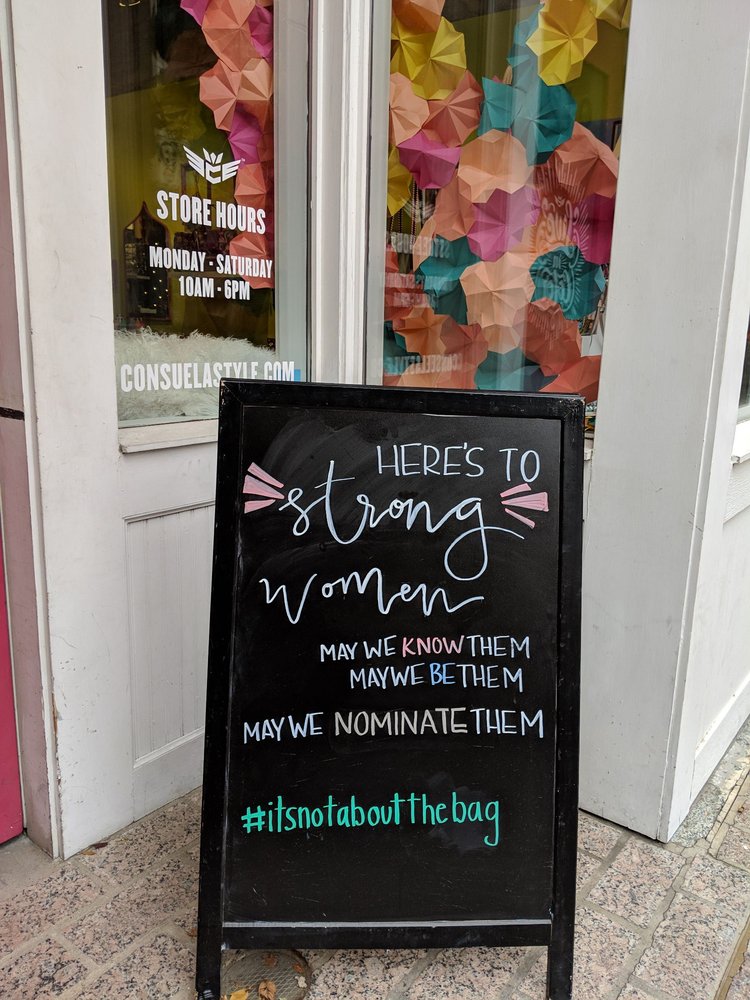 STORE HOURS
MONDAY - SATURDAY
10AM - 6PM
CONSUELASTYLE.COM
HERE'S TO
strong
women
MAY WE KNOW THEM
MAY WE BE THEM
MAY WE NOMINATE THEM
#itsnotaboutthebag